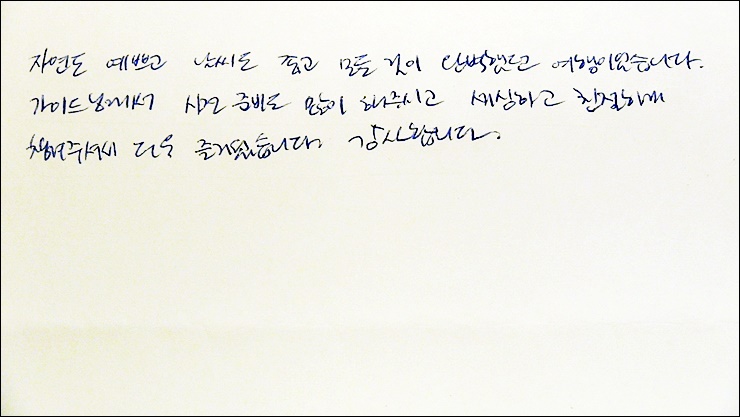 자연도 예쁘고 날씨도 좋고 모든 것이 완벽했던 여행이었습니다.
가이드님께서 사전 준비도 많이 해주시고 세심하고 친절하게
챙겨주셔서 더욱 즐거웠습니다. 감사합니다.